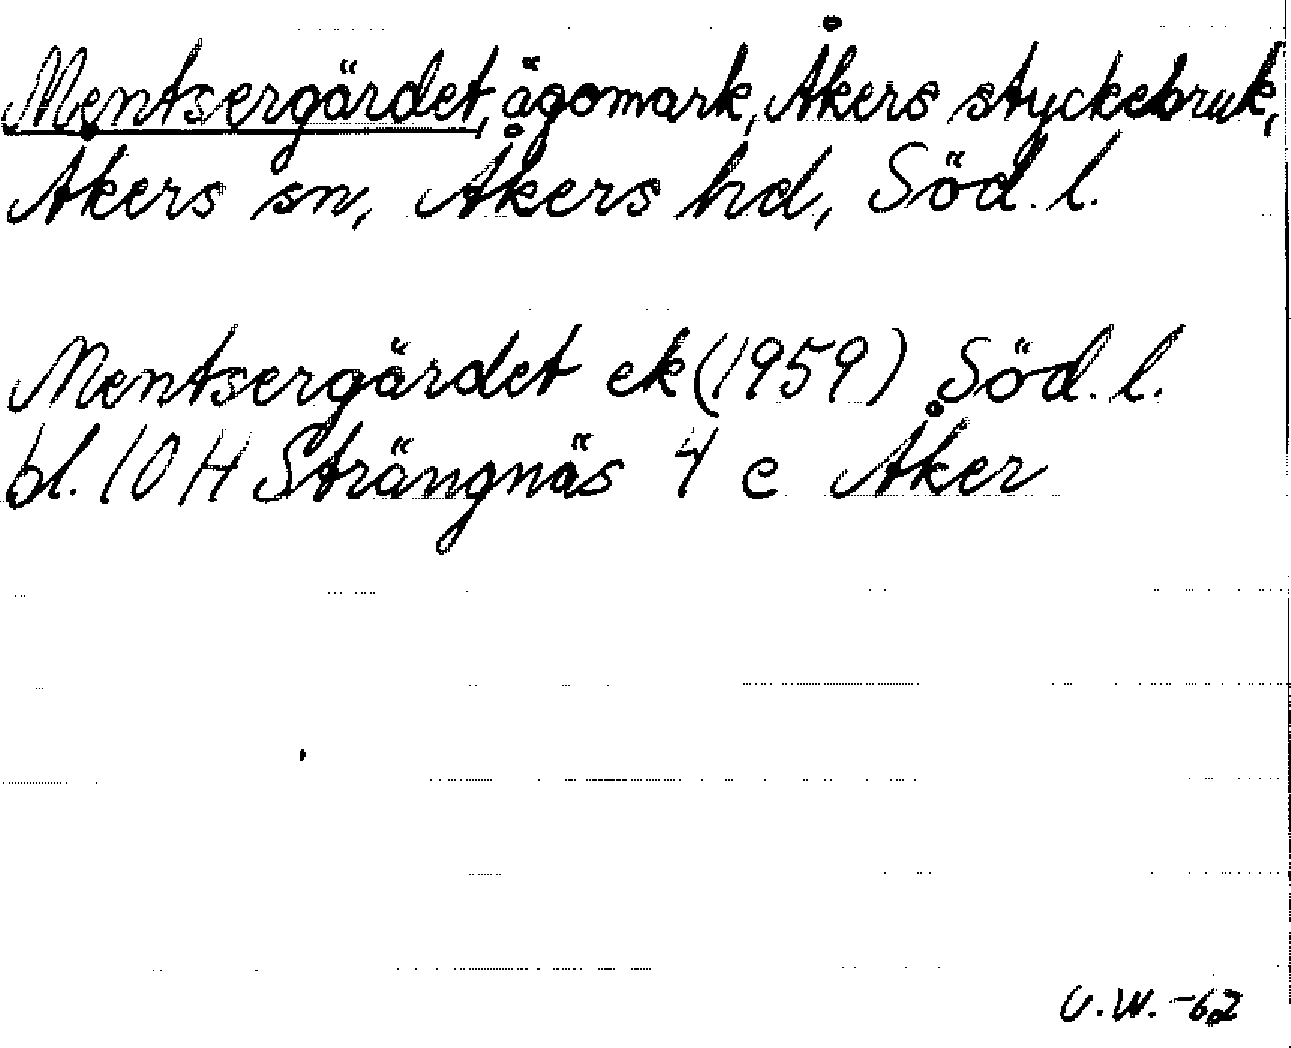 Mentsergärdet, ägomark, Åkers styckebruk,
Åkers sn, Åkers hd, Söd. l.
Mentsergärdet ek (1959) Söd. l.
bl. 10 H Strängnäs 4 c Åker
U.W. -62